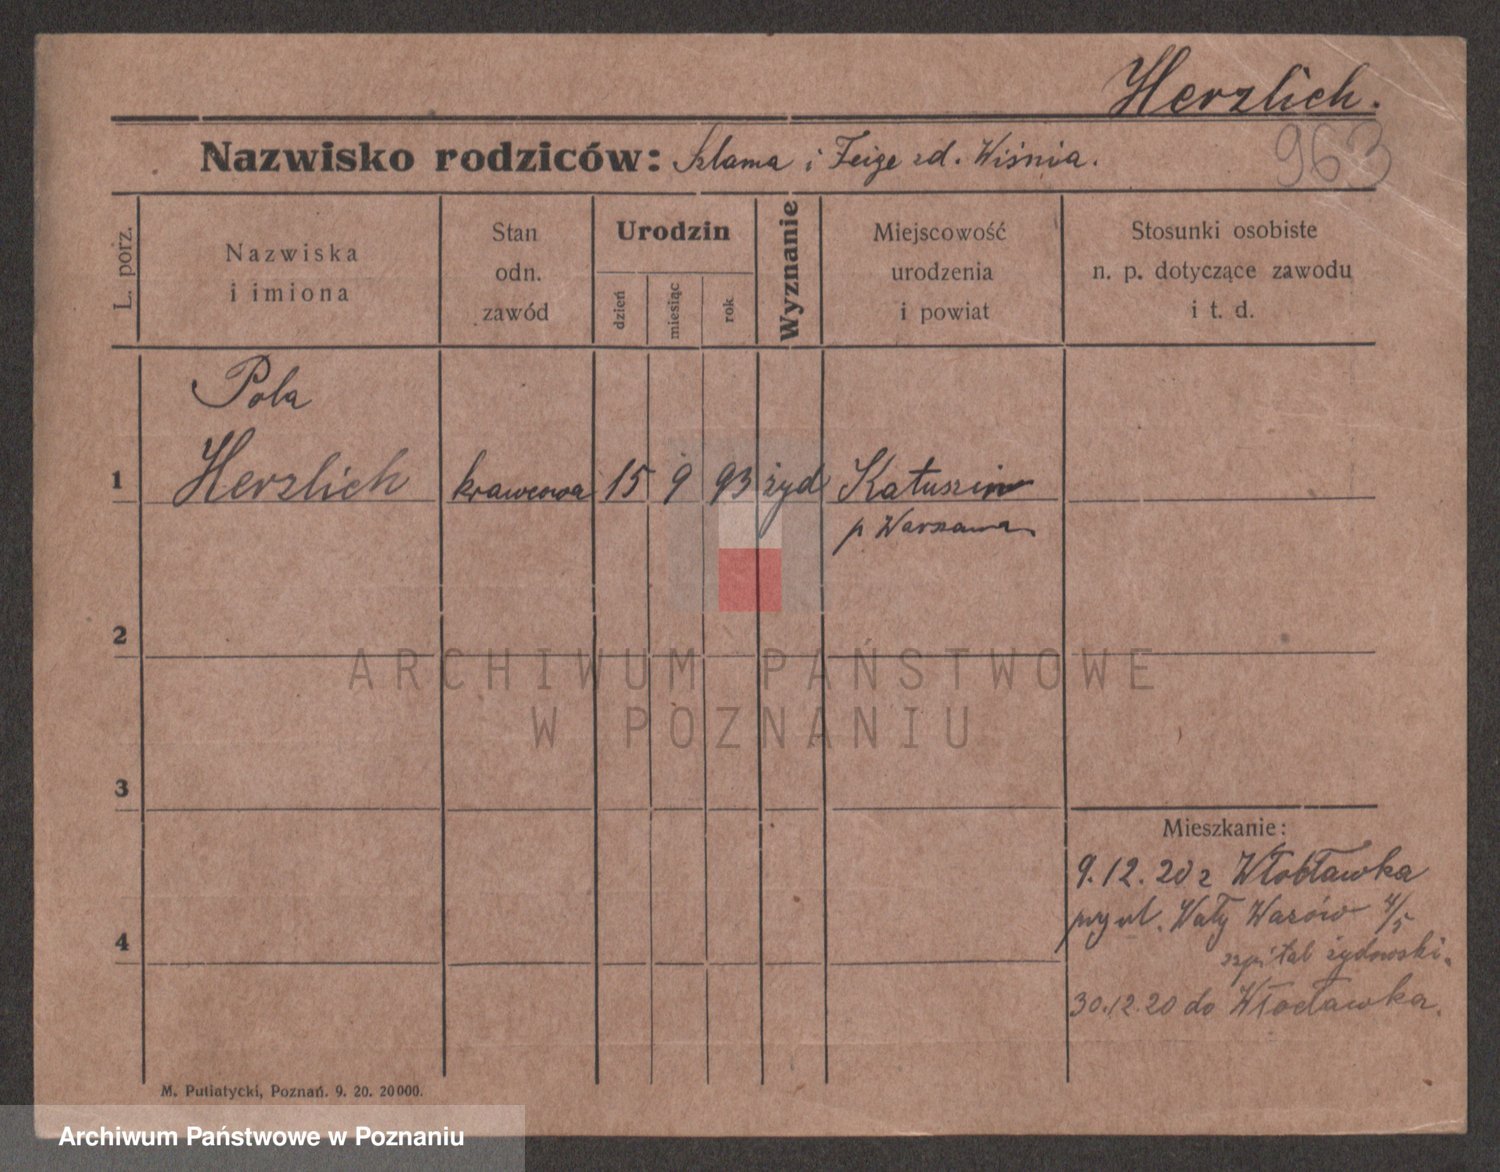 Herzlich.
963
Nazwisko rodziców: Szlama i Feige zd. Wiśnia.
L. porz.
Nazwiska
i imiona
Stan
odn.
zawód
Urodzin
dzień
miesiąc
rok
Wyznanie
Miejscowość
urodzenia
i powiat
Stosunki osobiste
n. p. dotyczące zawodu
i t. d.
Pola
1 Herzlich krawcowa 15 9 93 żyd Katuszin
p Warszawa
2
ARCHIWUM PAŃSTWOWE
W POZNANIU
3
Mieszkanie:
9.12.20 z Włocławka
przy ul. Wały Wazów 4/5
4
szpital żydowski.
30.12.20 do Włocławka.
M. Putiatycki, Poznań. 9. 20. 20000.
Archiwum Państwowe w Poznaniu